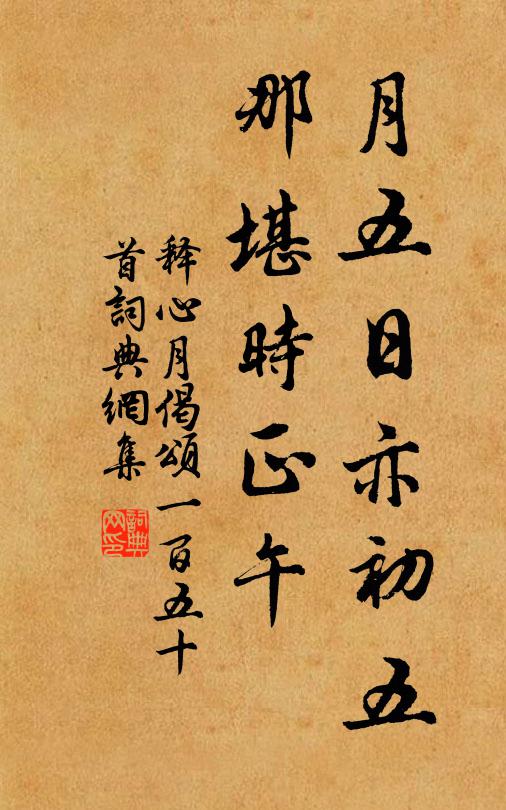 月五日亦初五
那堪時正午
释心月偈頌一百五十
首詞典網集
詞典
网印